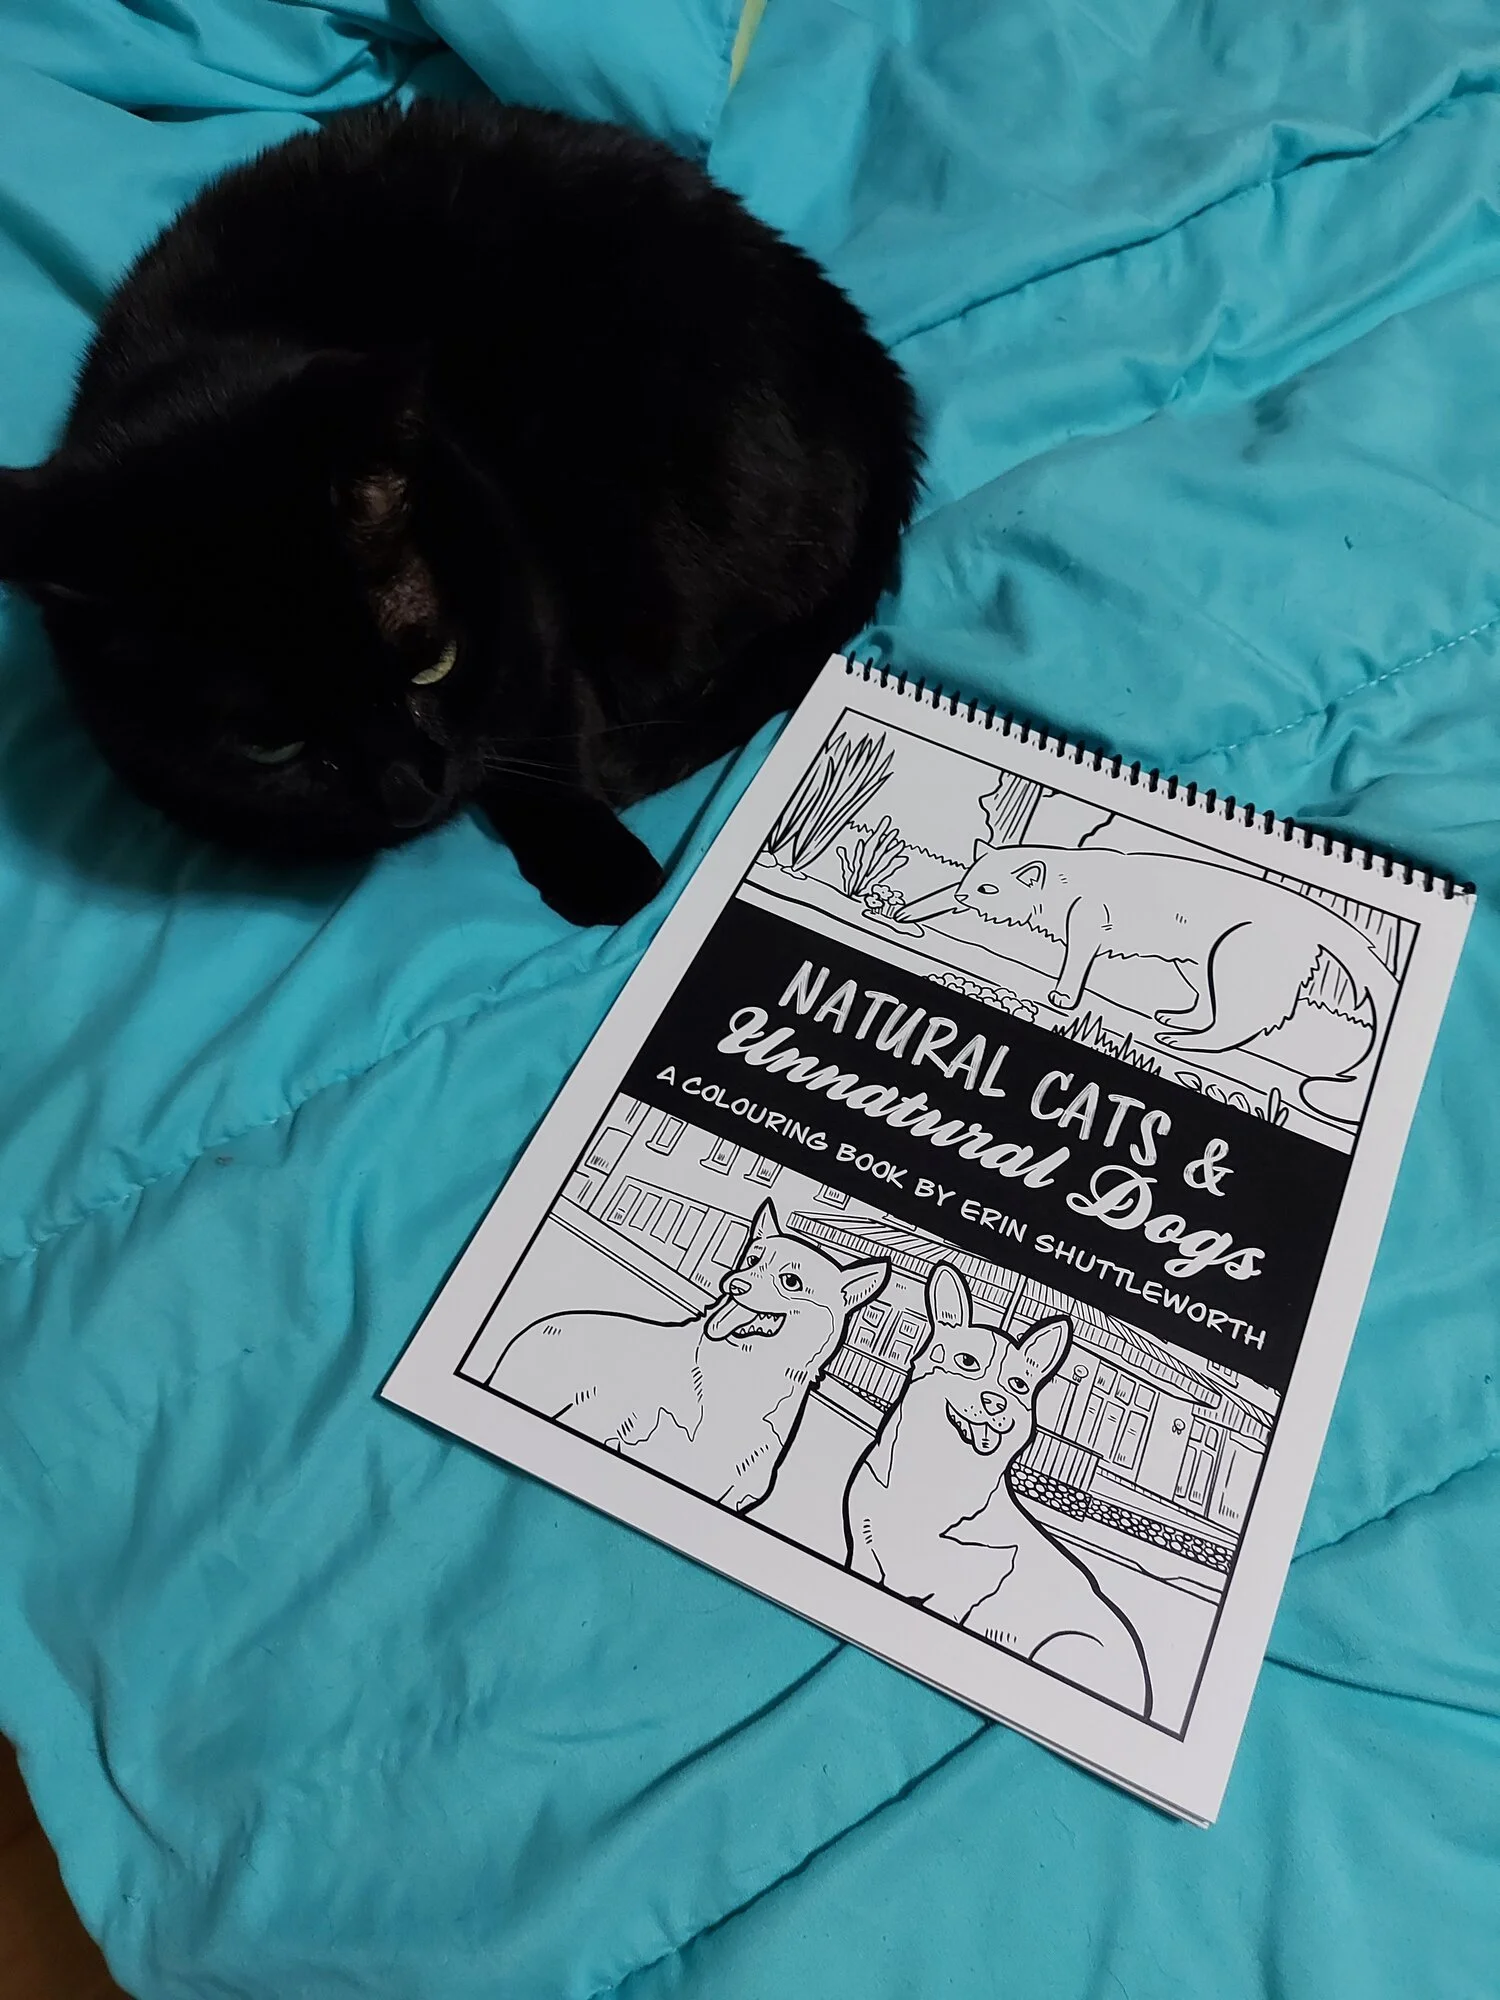 NATURAL CATS &
Unnatural Dogs
A COLOURING BOOK BY ERIN SHUTTLEWORTH